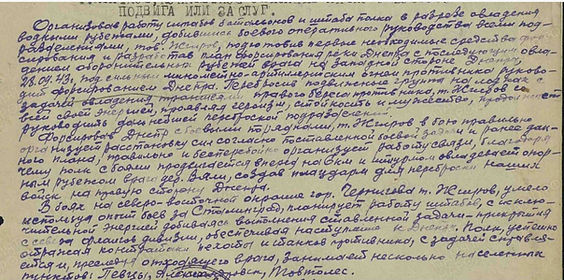 ПОДВИГА ИЛИ ЗАСЛУГ.
Организовав работу штабов батальонов и штаба полка в разрезе овладения
водными рубежами, добившись боевого оперативного руководства всеми под-
разделениями, тов. Жиров, подготовив первые необходимые средства фор-
сирования и разработав план форсирования реки Днепра с последующим овла-
дением оборонительных рубежей врага на западной стороне Днепра,
28.09.43г. под сильным минометно-артиллерийским огнем противника руково-
дит форсированием Днепра. Перебросив подвижной группы на лодках с
задачей овладения траншеями правого берега противника, т. Жиров со
всей своей энергией, проявляя героизм, стойкость и мужество, продолжает
руководить дальнейшей переброской подразделений.
Форсировав Днепр с боевыми порядками, т. Жиров в бою правильно
организует расстановку сил согласно поставленной боевой задачи и ранее дан-
ного плана, правильно и бесперебойно организует работу связи, благодаря
чему полк с боями продвигается вперед на Вяли и штурмом овладевает опор-
ным рубежом врага дер. Вяли, создав плацдарм для переброски наших
войск на правую сторону Днепра.
В боях на северо-восточной окраине гор. Чернигова т. Жиров, умело
используя опыт боев за Сталинград, планирует работу штабов, с исклю-
чительной энергией добивается выполнения поставленной задачи - прикрытия
с севера флангов дивизии, обеспечивая наступление к Днепру. Полк, успешно
отражая контратаки пехоты и танков противника, с задачей справляе-
тся и, преследуя отходящего врага, занимает несколько населенных
пунктов: Певцы, Товстолес.